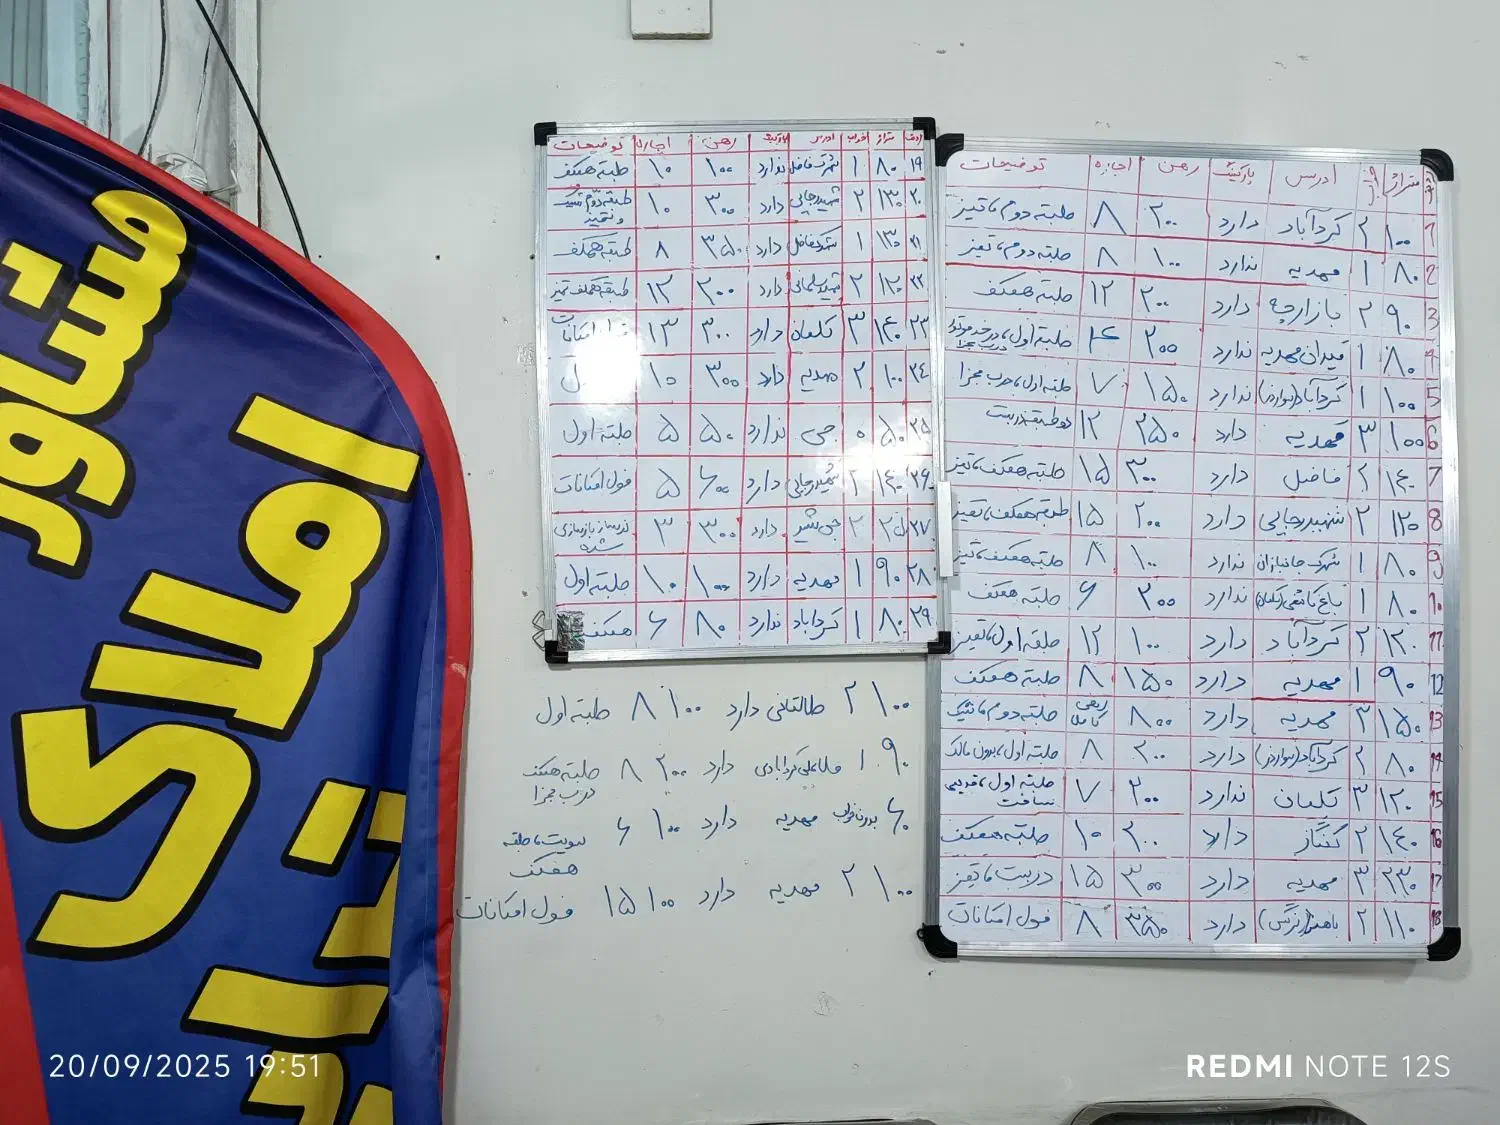 ردیف متراژ خواب ادرس پارکینگ رهن اجاره توضیحات
1 ۱۰۰ ۲ کردآباد دارد ۲۰۰ ۸ طبقه دوم، تمیز
2 ۸۰ ۱ مهدیه ندارد ۱۰۰ ۸ طبقه دوم، تمیز
3 ۹۰ ۲ بازارچه دارد ۲۰۰ ۱۲ طبقه همکف
4 ۸۰ ۱ میدان مهدیه ندارد ۲۰۰ ۴ طبقه اول،
5 ۱۰۰ ۱ کردآباد ندارد ۱۵۰ ۷ طبقه اول، درب مجزا
6 ۱۰۰ ۳ مهدیه دارد ۲۵۰ ۱۲ دو طبقه دربست
7 ۱۴۰ ۲ فاضل دارد ۳۰۰ ۱۵ طبقه همکف، تمیز
8 ۱۲۰ ۲ شهید رجایی دارد ۲۰۰ ۱۵ طبقه همکف، تمیز
9 ۸۰ ۱ شهرک جانبازان ندارد ۱۰۰ ۸ طبقه همکف، تمیز
10 ۸۰ ۱ ندارد ۳۰۰ ۶ طبقه همکف
11 ۱۲۰ ۲ کردآباد دارد ۱۰۰ ۱۲ طبقه اول، تمیز
12 ۹۰ ۱ مهدیه دارد ۱۵۰ ۸ طبقه همکف
13 ۱۵۰ ۳ مهدیه دارد ۸۰۰ رهن کامل طبقه دوم، تکی
14 ۸۰ ۲ کردآباد دارد ۲۰۰ ۸ طبقه اول، بدون مالک
15 ۱۲۰ ۳ گلیان ندارد ۲۰۰ ۷ طبقه اول، قدیمی ساخت
16 ۱۴۰ ۲ گلناز دارد ۲۰۰ ۱۰ طبقه همکف
17 ۲۳۰ ۳ مهدیه دارد ۳۰۰ ۱۵ دربست، تمیز
18 ۱۱۰ ۲ باهنر(نرگس) دارد ۳۵۰ ۸ فول امکانات
ردیف متراژ خواب ادرس پارکینگ رهن اجاره توضیحات
۱۹ ۸۰ ۱ شهرک فاضل ندارد ۱۰۰ ۱۰ طبقه همکف
۲۰ ۱۳۰ ۲ شهید رجایی دارد ۳۰۰ ۱۰ طبقه دوم تکی و تمیز
۲۱ ۱۳۰ ۱ شهرک فاضل دارد ۳۵۰ ۸ طبقه همکف
۲۲ ۱۲۰ ۲ شهید سلیمانی دارد ۲۰۰ ۱۲ طبقه همکف تمیز
۲۳ ۱۴۰ ۳ گلیان دارد ۳۰۰ ۱۳ امکانات
۲۴ ۱۰۰ ۲ مهدیه دارد ۳۰۰ ۱۰
۲۵ ۵۰ ۰ جی ندارد ۵۰ ۵ طبقه اول
۲۶ ۱۴۰ ۲ شهید رجایی دارد ۶۰۰ ۵ فول امکانات
۲۷ جی شیر دارد ۳۰۰ ۳ بازسازی شده
۲۸ ۹۰ ۱ مهدیه دارد ۱۰۰ ۱۰ طبقه اول
۲۹ ۸۰ ۱ کردآباد ندارد ۸۰ ۶ همکف
۱۰۰ ۲ طالقانی دارد ۱۰۰ ۸ طبقه اول
۹۰ ۱ ملاعلی کردآبادی دارد ۲۰۰ ۸ طبقه همکف
درب مجزا
۶۰ بدون خواب مهدیه دارد ۱۰۰ ۶ سوییت، طبقه
همکف
۱۰۰ ۲ مهدیه دارد ۱۰۰ ۱۵ فول امکانات
مشاور
املاک
20/09/2025 19:51
REDMI NOTE 12S